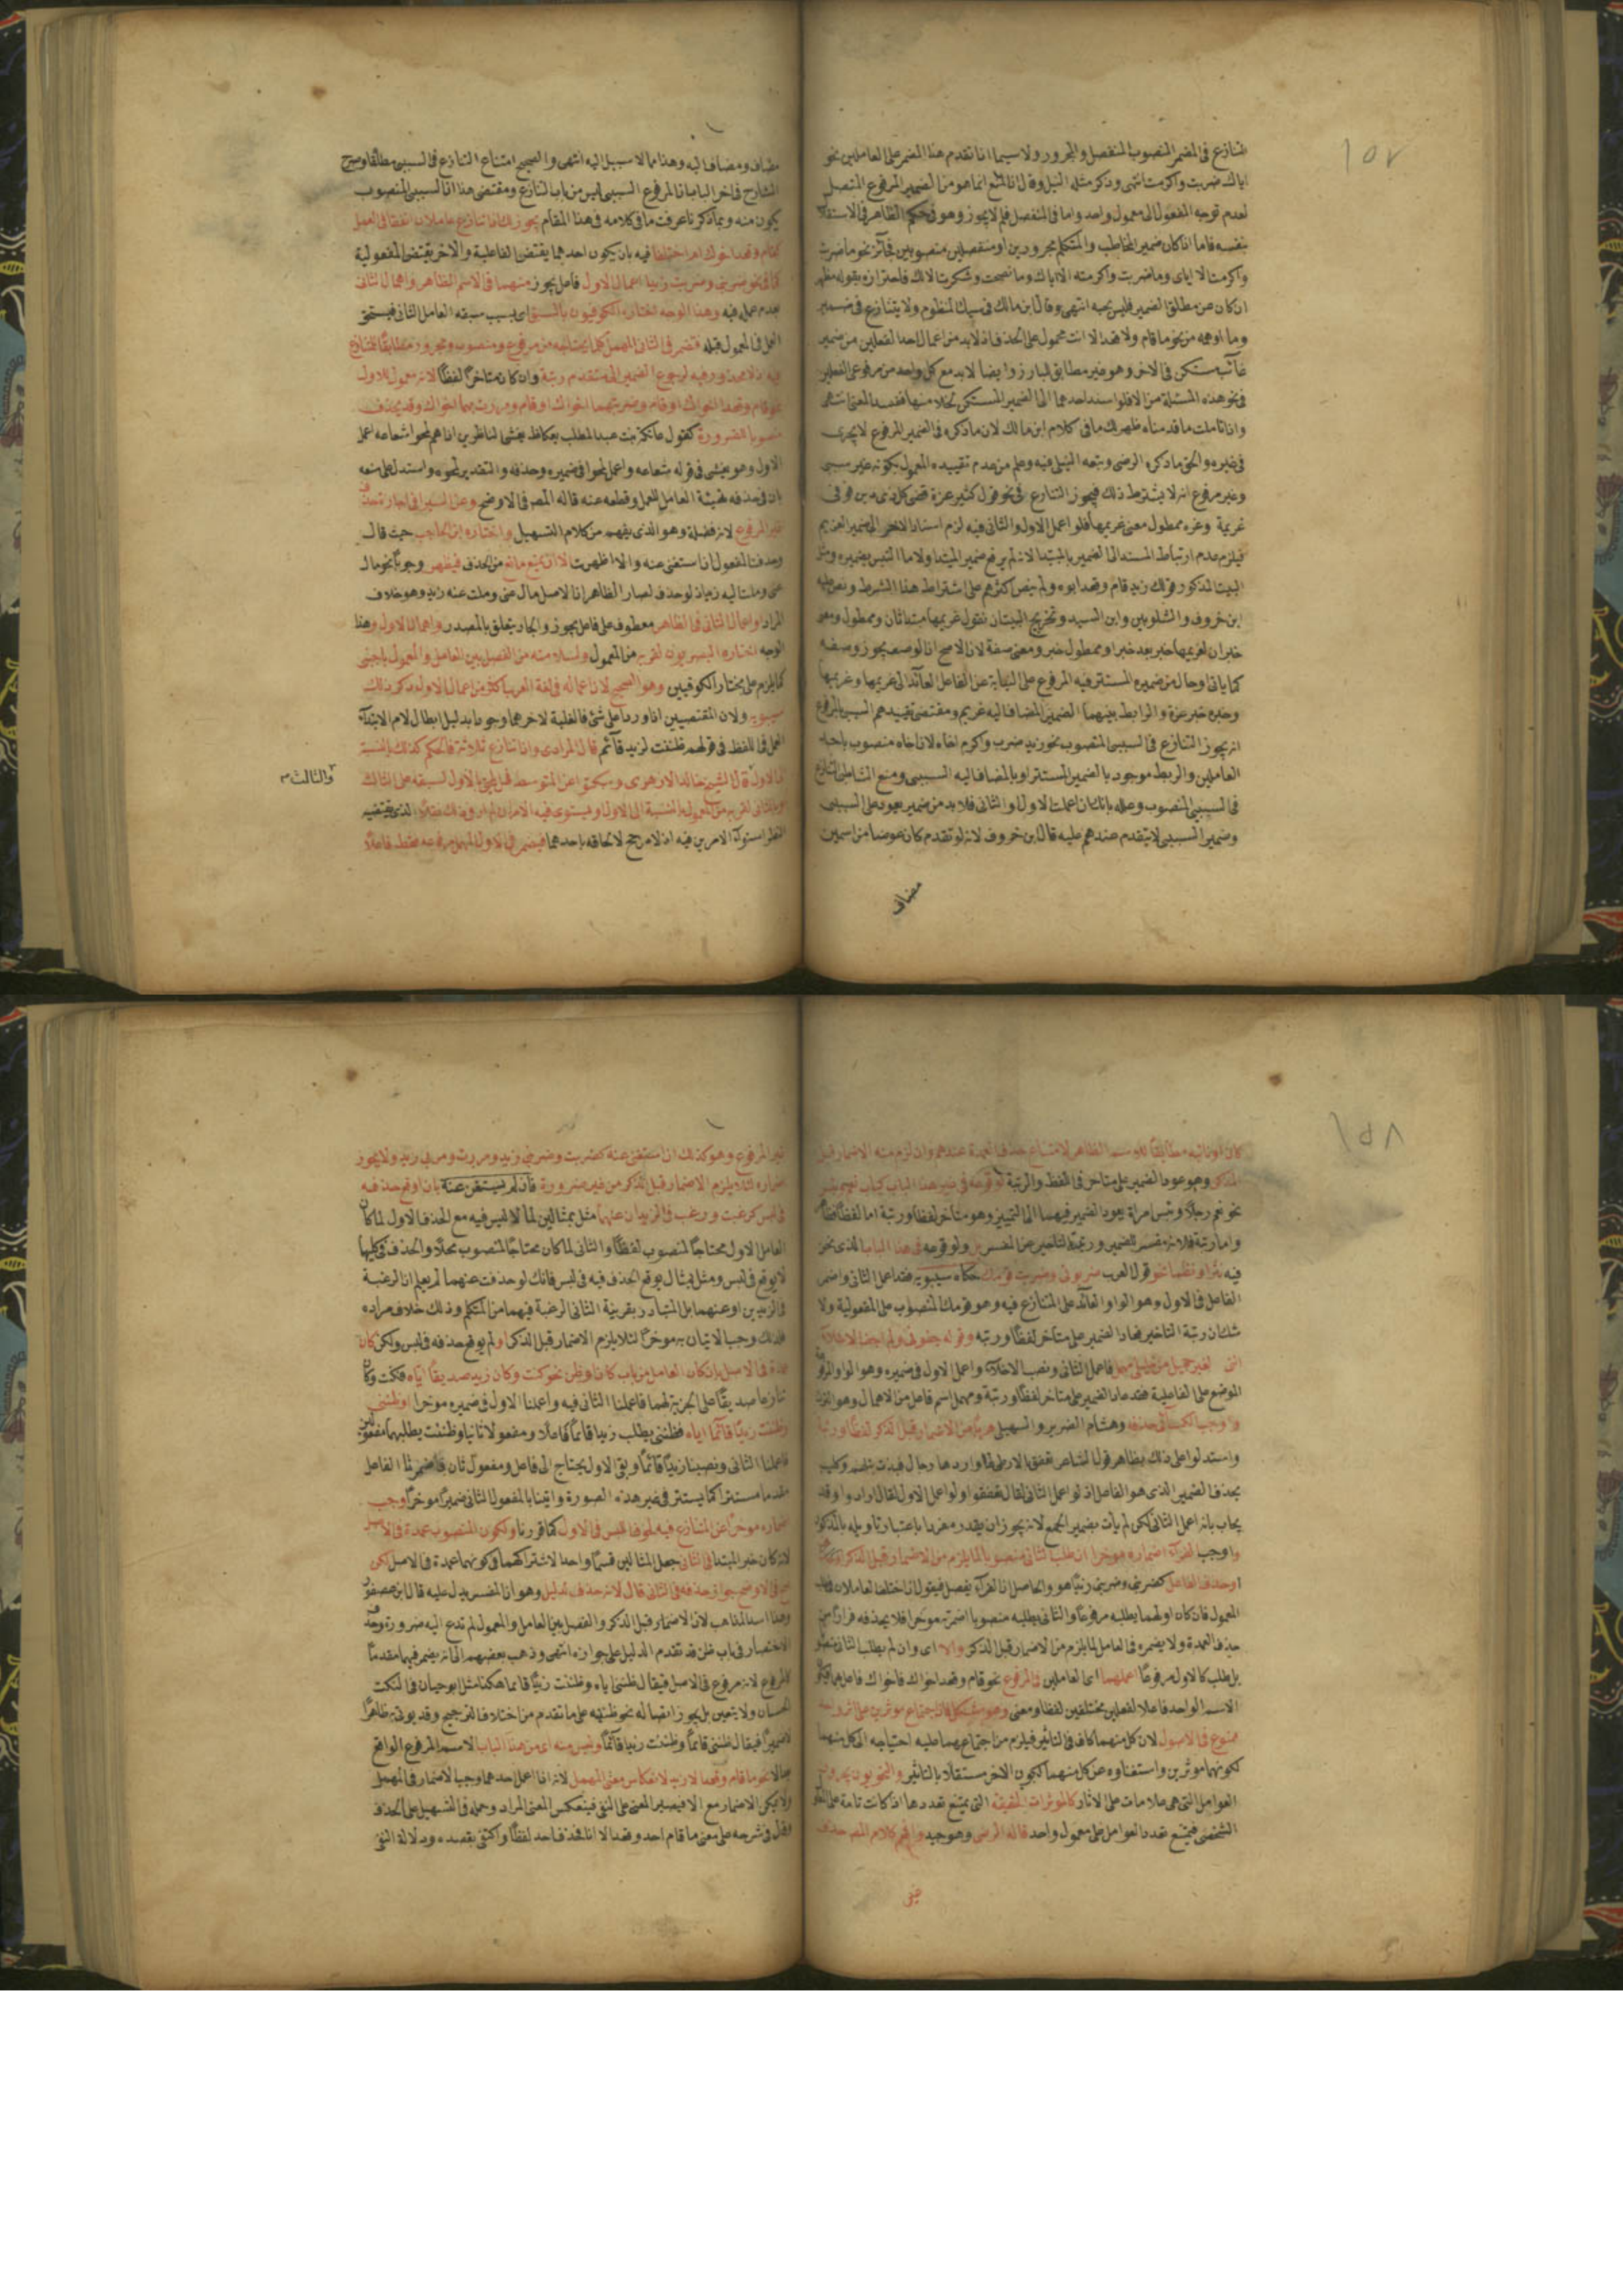 ١٥٧
التنازع فى المضمر المنصوب المنفصل والمجرور ولا سيما اذا تقدم هذا المضمر على العاملين نحو
اياك ضربت واكرمت انتهى وذكر مثله النيلى وقال ان المنع انما هو من الضمير المرفوع المتصل
لعدم توجه المفعول الى معمول واحد واما فى المنفصل فلم لا يجوز وهو فى حكم الظاهر فى الاستقلا
بنفسه فاما اذا كان ضمير المخاطب والمتكلم مجرورين او منفصلين منصوبين فجائز نحو ما ضربت
واكرمت الا اياى وما ضربت واكرمت الا اياك وما نصحت وشكرت الا لك فاحترازه بقوله مظهر
ان كان عن مطلق الضمير فليس بجيد انتهى وقال ابن مالك فى سبك المنظوم ولا يتنازع فى ضمير
وما اوهمه من نحو ما قام ولا قعد الا انت محمول على الحذف اذ لا بد من اعمال احد الفعلين من ضمير
غائب مستكن فى الاخر وهو غير مطابق للبارز وايضا لا بد مع كل واحد من مرفوعى الفعلين
فى نحو هذه المسئلة من الا فلو اسند احدهما الى الضمير المستكن لخلا منها ففسد المعنى انتهى
واذا تاملت ما قدمناه ظهر لك ما فى كلام ابن مالك لان ما ذكره فى الضمير المرفوع لا يجرى
فى غيره والحق ما ذكره الرضى وتبعه النيلى فيه وعلم من عدم تقييده المعمول بكونه غير سببى
وغير مرفوع انه لا يشترط ذلك فيجوز التنازع فى نحو قول كثير عزة قضى كل ذى دين فوفى
غريمه وعزة ممطول معنى غريمها فلو اعمل الاول والثانى فيه لزم اسناد الاخر الى ضمير الغريم
فيلزم عدم ارتباط المسند الى الضمير بالمبتدا لانه لم يرفع ضمير المبتدا ولا ما التبس بضميره ومثل
البيت المذكور قولك زيد قام وقعد ابوه ولم ينص اكثرهم على اشتراط هذا الشرط ونص عليه
ابن خروف والشلوبين وابن السيد وتخريج البيت ان نقول غريمها مبتدا ثان وممطول ومعنى
خبران لغريمها خبر بعد خبر او ممطول خبر ومعنى صفة لان الاصح ان الوصف يجوز وصفه
كما ياتى او حال من ضميره المستتر فيه المرفوع على النيابة عن الفاعل العائد الى غريمها وغريمها
وخبره خبر عزة والرابط بينهما الضمير المضاف اليه غريم ومقتضى تقييدهم السببى بالمرفوع
انه يجوز التنازع فى السببى المنصوب نحو زيد ضرب واكرم اخاه لان اخاه منصوب باحد
العاملين والربط موجود بالضمير المستتر او بالمضاف اليه السببى ومنع الشاطبى التنازع
فى السببى المنصوب وعلله بانك ان اعملت الاول او الثانى فلا بد من ضمير يعود على السببى
وضمير السببى لا يتقدم عندهم عليه قال ابن خروف لانه لو تقدم كان عوضا من اسمين
مضاف
مضاف ومضاف اليه وهذا مما لا سبيل اليه انتهى والصحيح امتناع التنازع فى السببى مطلقا وصرح
الشارح فى اخر الباب بان المرفوع السببى ليس من باب التنازع ومقتضى هذا ان السببى المنصوب
يكون منه وبما ذكرنا عرفت ما فى كلامه فى هذا المقام يجوز لك اذا تنازع عاملان اتفقا فى العمل
كقام وقعد اخوك ام اختلفا فيه بان يكون احدهما يقتضى الفاعلية والاخر يقتضى المفعولية
كما فى نحو ضربنى وضربت زيدا اعمال الاول فاعل يجوز منهما فى الاسم الظاهر واهمال الثانى
بعدم عمله فيه وهذا الوجه اختاره الكوفيون بالسبق اى بسبب سبقه العامل الثانى فيستحق
العمل فى المعمول قبله فتضمر فى الثانى المهمل كل ما يحتاجه من مرفوع ومنصوب ومجرور مطابقا للمتنازع
فيه اذ لا محذور فيه لرجوع الضمير الى متقدم رتبة وان كان متاخرا لفظا لانه معمول للاول
نحو قام وقعدا اخواك او قام وضربتهما اخواك او قام ومررت بهما اخواك وقد يحذف
منصوبا للضرورة كقول عاتكة بنت عبد المطلب بعكاظ يعشى الناظرين اذا هم لمحوا شعاعه اعمل
الاول وهو يعشى فى قوله شعاعه واعمل لمحوا فى ضميره وحذفه والتقدير لمحوه واستدل على منعه
بان فى حذفه تهيئة العامل للعمل وقطعه عنه قاله المص فى الاوضح وعن السيرافى اجازة حذف
غير المرفوع لانه فضلة وهو الذى يفهم من كلام التسهيل واختاره ابن الحاجب حيث قال
وحذفت المفعول ان استغنى عنه والا اظهرت الا ان يمنع مانع من الحذف فيظهر وجوبا نحو مال
عنى وملت اليه زيد اذ لو حذف لصار الظاهر ان الاصل مال عنى وملت عنه زيد وهو خلاف
المراد او اعمال الثانى فى الظاهر معطوف على فاعل يجوز والجار يتعلق بالمصدر واهمال الاول وهذا
الوجه اختاره البصريون لقربه من المعمول ولسلامته من الفصل بين العامل والمعمول باجنبى
كما يلزم على مختار الكوفيين وهو الصحيح لان اعماله فى لغة العرب اكثر من اعمال الاول ذكر ذلك
سيبويه ولان المقتضيين اذا وردا على شئ فالغلبة لاخرهما وجوبا بدليل ابطال لام الابتداء
العمل فى اللفظ فى قولهم ظننت لزيد قائم قال المرادى واذا تنازع ثلاثة فالحكم كذلك بالنسبة
الى الاول قال الشيخ خالد الازهرى وسكتوا عن المتوسط فهل يلحق بالاول لسبقه على الثالث
والثالث م
او بالثانى لقربه من المعمول بالنسبة الى الاول او يستوى فيه الامران لم ار فى ذلك نقلا الذى يقتضيه
النظر استواء الامرين فيه اذ لا مرجح لالحاقه باحدهما فيضمر فى الاول المهمل مرفوعه فقط فاعلا
١٥٨
كان او نائبه مطابقا للاسم الظاهر لامتناع حذف العمدة عندهم وان لزم منه الاضمار قبل
الذكر وهو عود الضمير على متاخر فى اللفظ والرتبة لوقوعه فى غير هذا الباب كباب نعم وبئس
نحو نعم رجلا وبئس امراة يعود الضمير فيهما الى التمييز وهو متاخر لفظا ورتبة اما لفظا فظا
واما رتبة فلانه مفسر للضمير ورتبة التاخير عن المفسر بل ولوقوعه فى هذا الباب الذى نحن
فيه نثرا ونظما نحو قول العرب ضربونى وضربت قومك حكاه سيبويه فقد اعمل الثانى واضمر
الفاعل فى الاول وهو الواو العائد على المتنازع فيه وهو قومك المنصوب على المفعولية ولا
شك ان رتبة التاخير فعاد الضمير على متاخر لفظا ورتبة وقوله جفونى ولم اجف الاخلاء
اننى لغير جميل من خليلى مهمل فاعمل الثانى ونصب الاخلاء واعمل الاول فى ضميره وهو الواو المرفو
الموضع على الفاعلية فقد عاد الضمير على متاخر لفظا ورتبة ومهمل اسم فاعل من الاهمال وهو الترك
واوجب الكسائى حذفه وهشام الضرير والسهيلى هربا من الاضمار قبل الذكر لفظا ورتبة
واستدلوا على ذلك بظاهر قول الشاعر تعفق بالارطى لها وارادها رجال فبذت نبلهم وكليب
بحذف الضمير الذى هو الفاعل اذ لو اعمل الثانى لقال تعفقوا ولو اعمل الاول لقال ارادوا وقد
يجاب بانه اعمل الثانى لكن لم يات بضمير الجمع لانه يجوز ان يقدر مفردا باعتبار تاويله بالمذكور
واوجب الفراء اضماره موخرا ان طلب الثانى منصوبا لما يلزم من الاضمار قبل الذكر
او حذف الفاعل كضربنى وضربت زيدا هو والحاصل ان الفراء يفصل فيقول اذا اختلف العاملان فى طلب
المعمول فان كان اولهما يطلبه مرفوعا والثانى يطلبه منصوبا اضمرته موخرا فلا يحذفه فرارا من
حذف العمدة ولا يضمره فى العامل لما يلزم من الاضمار قبل الذكر والا اى وان لم يطلب الثانى منصوبا
بل طلب كالاول مرفوعا اعملهما اى العاملين فى المرفوع نحو قام وقعد اخواك فاخواك فاعل بهما فيكون
الاسم الواحد فاعلا لفعلين مختلفين لفظا ومعنى وهو مشكل فان اجتماع موثرين على اثر واحد
ممنوع فى الاصول لان كل منهما كاف فى التاثير فيلزم من اجتماعهما عليه احتياجه الى كل منهما
لكونهما موثرين واستغناوه عن كل منهما لكون الاخر مستقلا بالتاثير والنحويون يجرون
العوامل التى هى علامات على الاثار كالموثرات الحقيقة التى يمتنع تعددها اذ كانت تامة على الاثر
الشخصى فيمتنع تعدد العوامل على معمول واحد قاله الرضى وهو جيد وافهم كلام المص حذف
غير
غير المرفوع وهو كذلك ان استغنى عنه كضربت وضربنى زيد ومررت ومر بى زيد ولا يجوز
اضماره لئلا يلزم الاضمار قبل الذكر من غير ضرورة فان لم يستغن عنه بان اوقع حذفه
فى لبس كرغبت ورغب فى الزيدان عنهما مثل بمثالين لما لا لبس فيه مع الحذف الاول لما كان
العامل الاول محتاجا لمنصوب لفظا والثانى لما كان محتاجا لمنصوب محلا والحذف فى كليهما
لا يوقع فى لبس ومثل بمثال يوقع الحذف فيه فى لبس فانك لو حذفت عنهما لم يعلم ان الرغبة
فى الزيدين او عنهما بل المتبادر بقرينة الثانى الرغبة فيهما من المتكلم وذلك خلاف مراده
فلذلك وجب الاتيان به موخرا لئلا يلزم الاضمار قبل الذكر او لم يوقع حذفه فى لبس ولكن كان
عمدة فى الاصل بان كان العامل من باب كان او ظن نحو كنت وكان زيد صديقا اياه فكنت وكان
تنازعا صديقا على الخبرية لهما فاعملنا الثانى فيه واعملنا الاول فى ضميره موخرا او ظننى
وظننت زيدا قائما اياه فظننى يطلب زيدا قائما فاعلا ومفعولا ثانيا وظننت يطلبهما مفعولين
فاعملنا الثانى ونصبنا زيدا قائما وبقى الاول يحتاج الى فاعل ومفعول ثان فاضمرنا الفاعل
مقدما مستترا كما يستتر فى غير هذه الصورة واتينا بالمفعول الثانى ضميرا موخرا وجب
اضماره موخرا عن المتنازع فيه لخوف اللبس فى الاول كما قررنا ولكون المنصوب عمدة فى الاصل
لانه كان خبر المبتدا فى الثانى جعل المثالين قسما واحدا لاشتراكهما فى كونهما عمدة فى الاصل لكن
صح فى الاوضح جواز حذفه فى الثانى قال لانه حذف لدليل وهو ان المفسر يدل عليه قال ابن عصفور
وهذا اسد المذاهب لان الاضمار قبل الذكر والفصل بين العامل والمعمول لم تدع اليه ضرورة وحذف
الاختصار فى باب ظن قد تقدم الدليل على جوازه انتهى وذهب بعضهم الى انه يضمر فيهما مقدما
كالمرفوع لانه مرفوع فى الاصل فيقال ظننى اياه وظننت زيدا قائما هكذا مثل ابو حيان فى النكت
الحسان ولا يتعين بل يجوز اتصاله نحو ظننيه على ما تقدم من اختلاف الترجيح وقد يوتى به ظاهرا
لا ضميرا فيقال ظننى قائما وظننت زيدا قائما وليس منه اى من هذا الباب الاسم المرفوع الواقع
بعد الا نحو ما قام وقعد الا زيد لانعكاس معنى المهمل لانه اذا اعمل احدهما وجب الاضمار فى المهمل
ولا يمكن الاضمار مع الا فيصير المعنى على النفى فينعكس المعنى المراد وحمله فى التسهيل على الحذف
وقال فى شرحه على معنى ما قام احد وقعد الا انا فحذف احد لفظا واكتفى بقصده ودلالة النفى